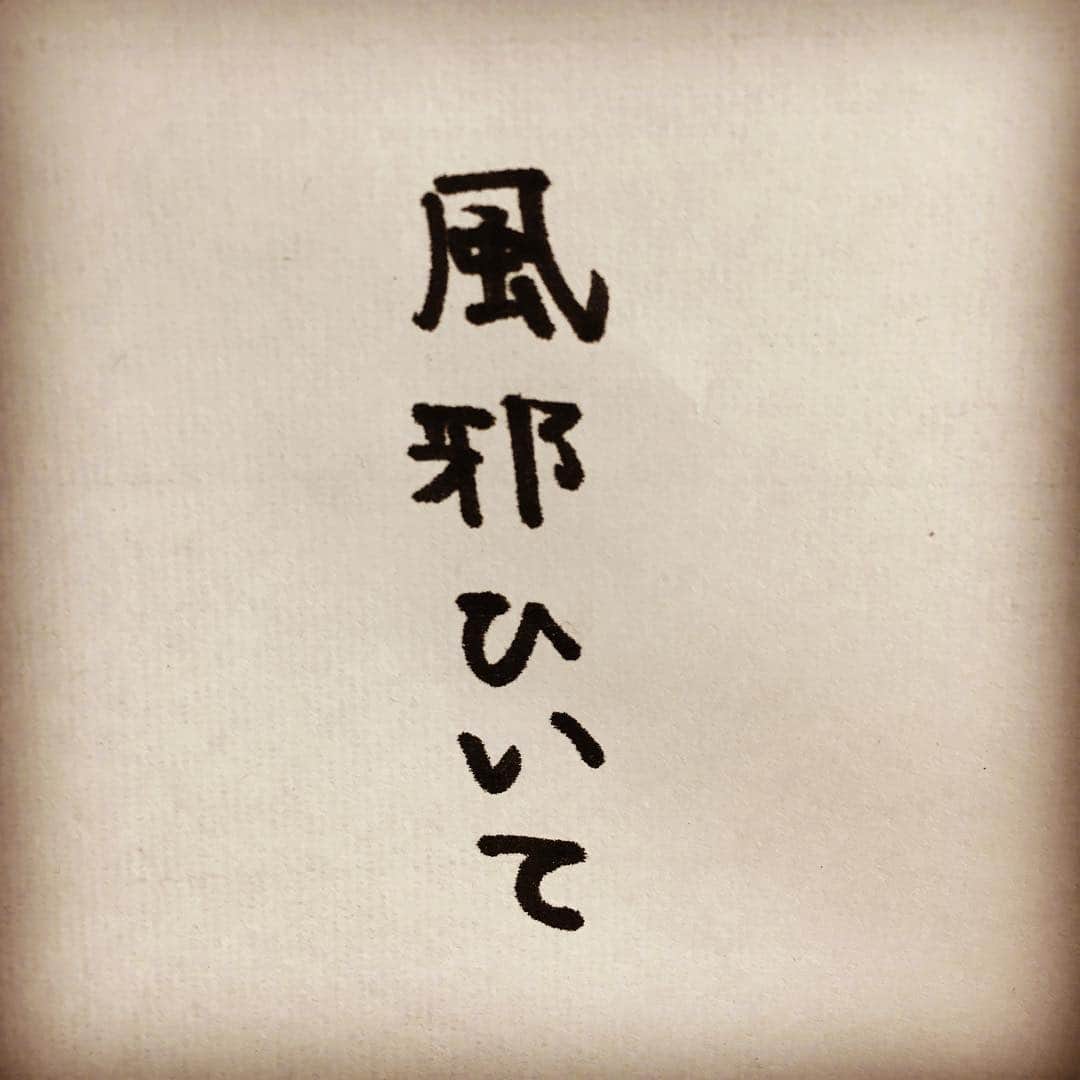 風邪ひいて